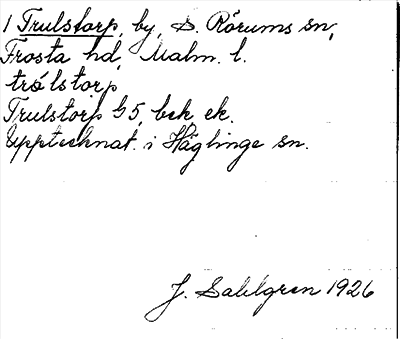 1 Trulstorp, by, S. Rörums sn,
Frosta hd, Malm. l.
trålstorp
Trulstorp G5, bek, ek.
Upptecknat. i Häglinge sn.
J. Sahlgren 1926